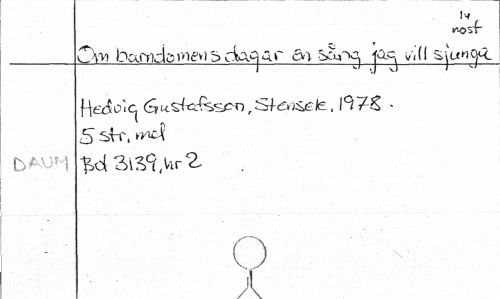 lv
nost
Om barndomens dagar en sång jag vill sjunga
Hedvig Gustafsson, Stensele, 1978.
5 str, mel
DAUM Bd 3139, nr 2